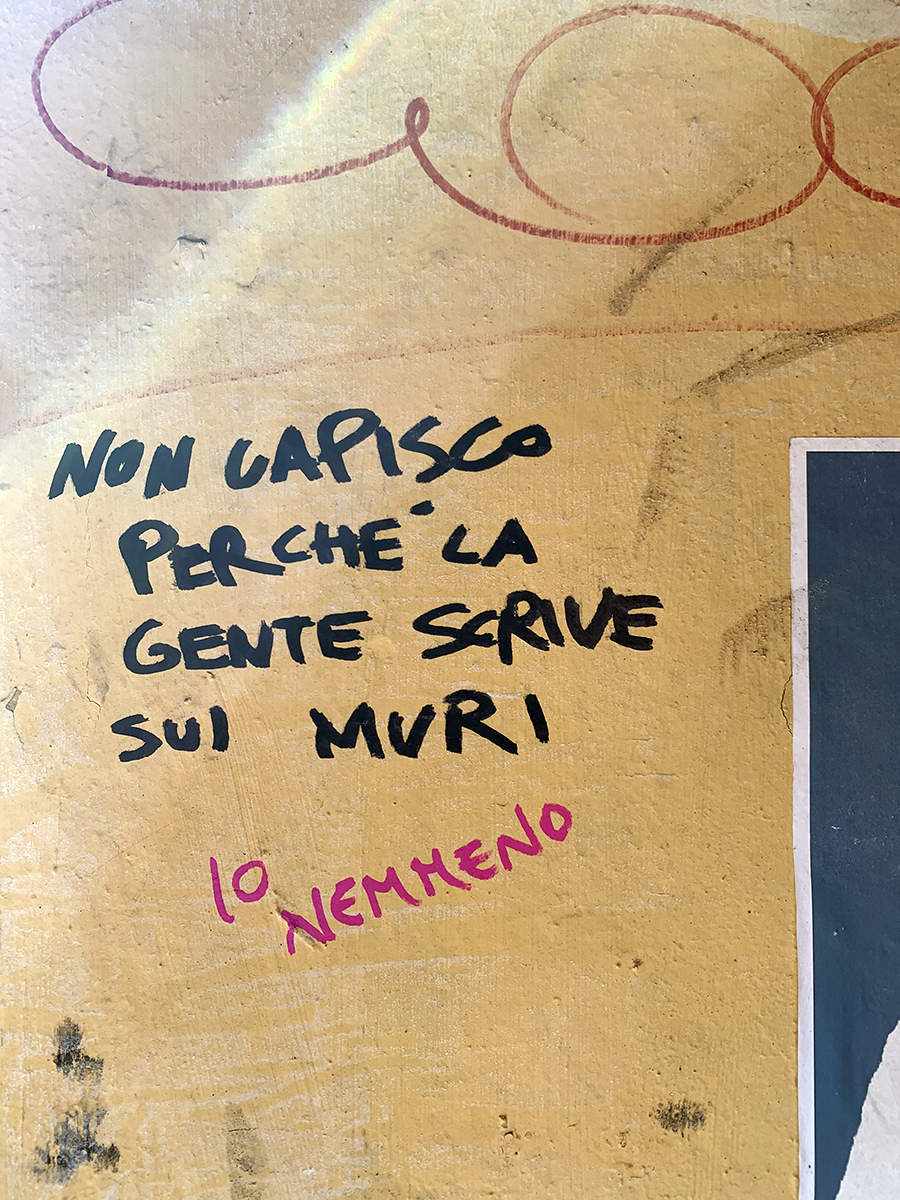 NON CAPISCO
PERCHE' LA
GENTE SCRIVE
SUI MURI
IO NEMMENO